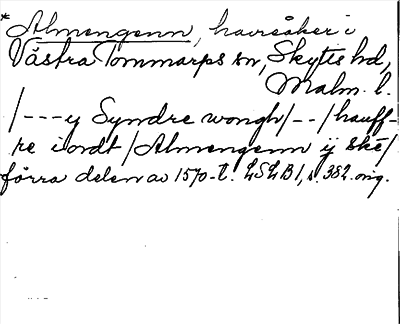 * Almengenn, havreåker i
Västra Tommarps sn, Skytts hd,
Malm. l.
/---y Syndre wongh/--/hauff-
re iordt/Almengenn ij ske/
förra delen av 1570-t. LSLB1, s. 382. orig.